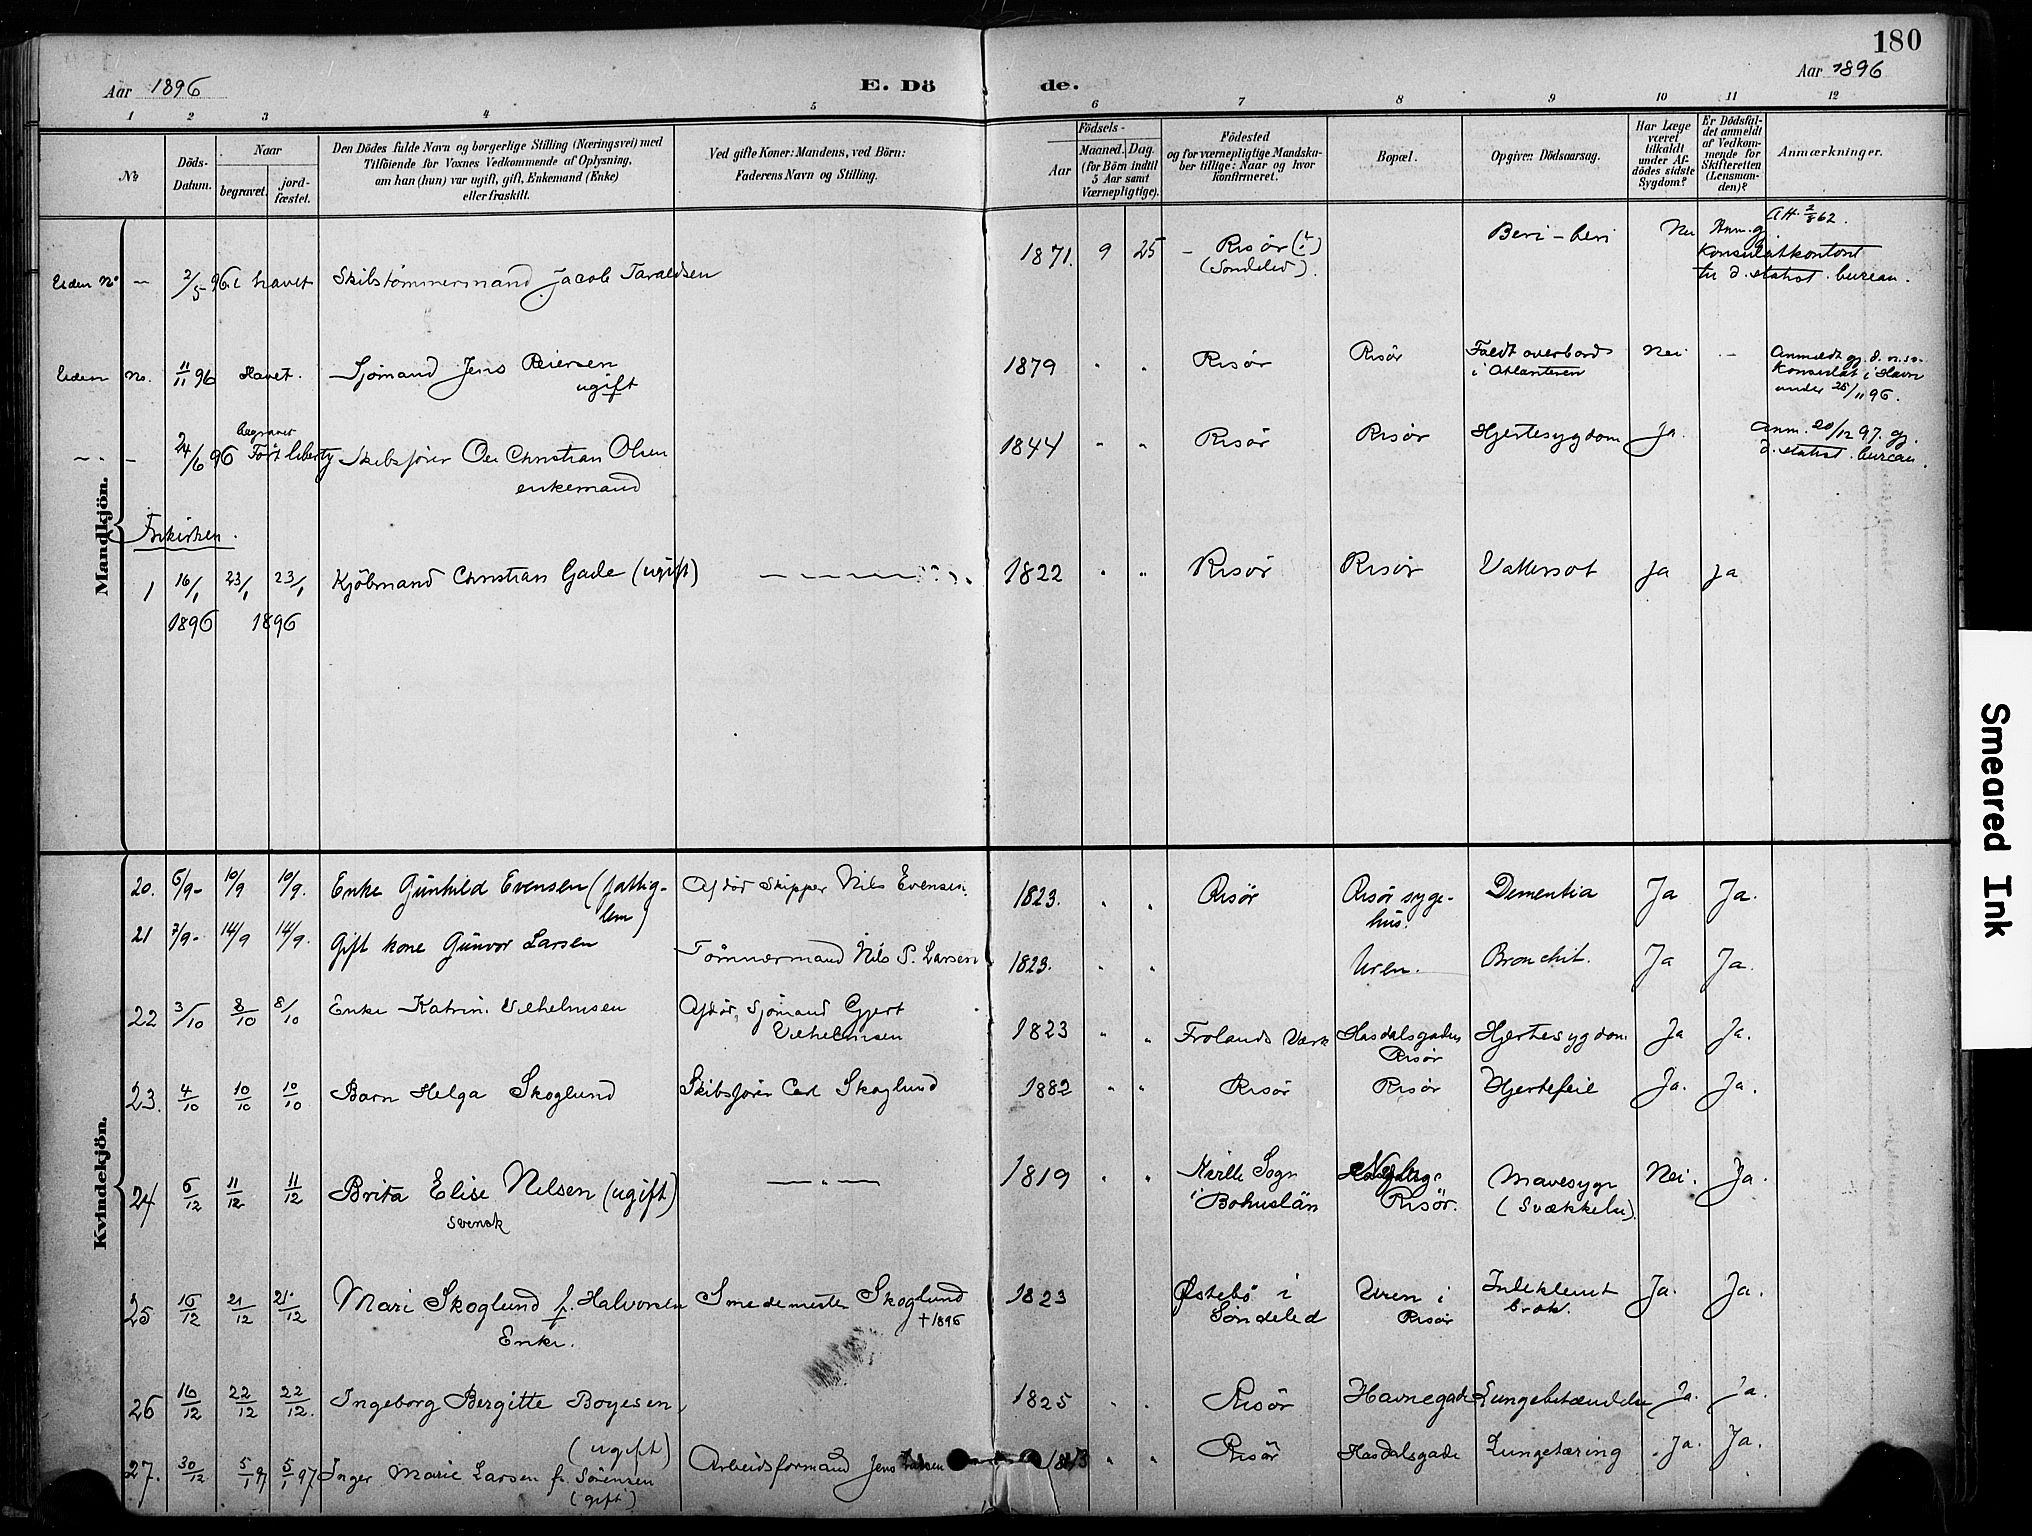 180
Aar 1896
E. Dö de.
Aar 1896
1 2 3 4 5 6 7 8 9 10 11 12
No
Döds-Datum.
Naar
begravet.
jord-fæstet.
Den Dödes fulde Navn og borgerlige Stilling (Næringsvei) med
Tilföiende for Voxnes Vedkommende af Oplysning,
om han (hun) var ugift, gift, Enkemand (Enke)
eller fraskilt.
Ved gifte Koner: Mandens, ved Börn:
Faderens Navn og Stilling.
Födsels-
Aar
Maaned. Dag.
(for Börn indtil
5 Aar samt
Værnepligtige).
Födested
og for værnepligtige Mandska-
ber tillige: Naar og hvor
konfirmeret.
Bopæl.
Opgiven Dödsaarsag.
Har Læge
været
tilkaldt
under Af-
dödes sidste
Sygdom?
Er Dödsfal-
det anmeldt
af Vedkom-
mende for
Skifteretten
(Lensman-
den)?
Anmærkninger.
Mandkjön.
Uden No — 2/5 96 i havet Skibstømmermand Jacob Taraldsen 1871. 9 25 - Risør (?) (Sondeled). Beri-beri Nei Anm. gj. Konsulatkontort til d. statist. bureau. Att. 2/8 62.
Uden No. 11/11 96 Havet. Sjømand Jens Reiersen 1879 " " Risør Risør Faldt overbord Nei — Anmeldt gj. d. n. sv.
ugift i Atlanteren Konsulat i Havre
under 25/11 96.
— " — 24/6 96 begravet Fort liberty Skibsfører Ole Christian Olsen 1844 " " Risør Risør Hjertesygdom Ja. Anm. 20/12 97. gj.
enkemand d. statist. bureau.
Frikirken.
1 16/1 23/1 23/1 Kjøbmand Christian Gade (ugift) — — — — 1822 " " Risør Risør Vattersot ja ja
1896 1896
Kvindekjön.
20. 6/9- 10/9 10/9. Enke Gunhild Evensen (fattig- Afdød Skipper Nils Evensen. 1823. " " Risør Risør syge- Dementia Ja Ja.
lem) hus.
21 7/9- 14/9 14/9. Gift kone Gunvor Larsen Tømmermand Nils P. Larsen 1823. " " Uren. Bronchit. Ja Ja.
22 3/10 8/10 8/10 Enke Katrine Vilhelmsen Afdød, Sjømand Gjert 1823 " " Frolands Værk Hasdalsgaden Hjertesygdom Ja Ja.
Vilhelmsen Risør
23. 4/10 10/10 10/10 Barn Helga Skoglund Skibsfører Carl Skoglund 1882 " " Risør Risør Hjertefeil Ja. Ja.
24 6/12 11/12 11/12 Brita Elise Nilsen (ugift) — " — 1819 " " Sogn Mavesyge Nei. Ja.
svensk i Bohuslän Risør. (Svækkelse).
25 15/12 21/12 21/12 Mari Skoglund f. Halvorsen Smedemester Skoglund 1823 Østebö i Uren i Indeklemt Ja. Ja.
Enke. +1896 Söndeled Risør brok.
26 16/12 22/12 22/12. Ingeborg Bergitte Boyesen, 1825 " " Risør Havnegade Lungebetændelse Ja. Ja.
(ugift)
27. 30/12 5/1 97 5/1 97 Inger Marie Larsen f. Sörensen Arbeidsformand Jens Larsen " " Risör Hasdalsgade Lungetæring Ja. Ja.
(gift)
Smeared Ink